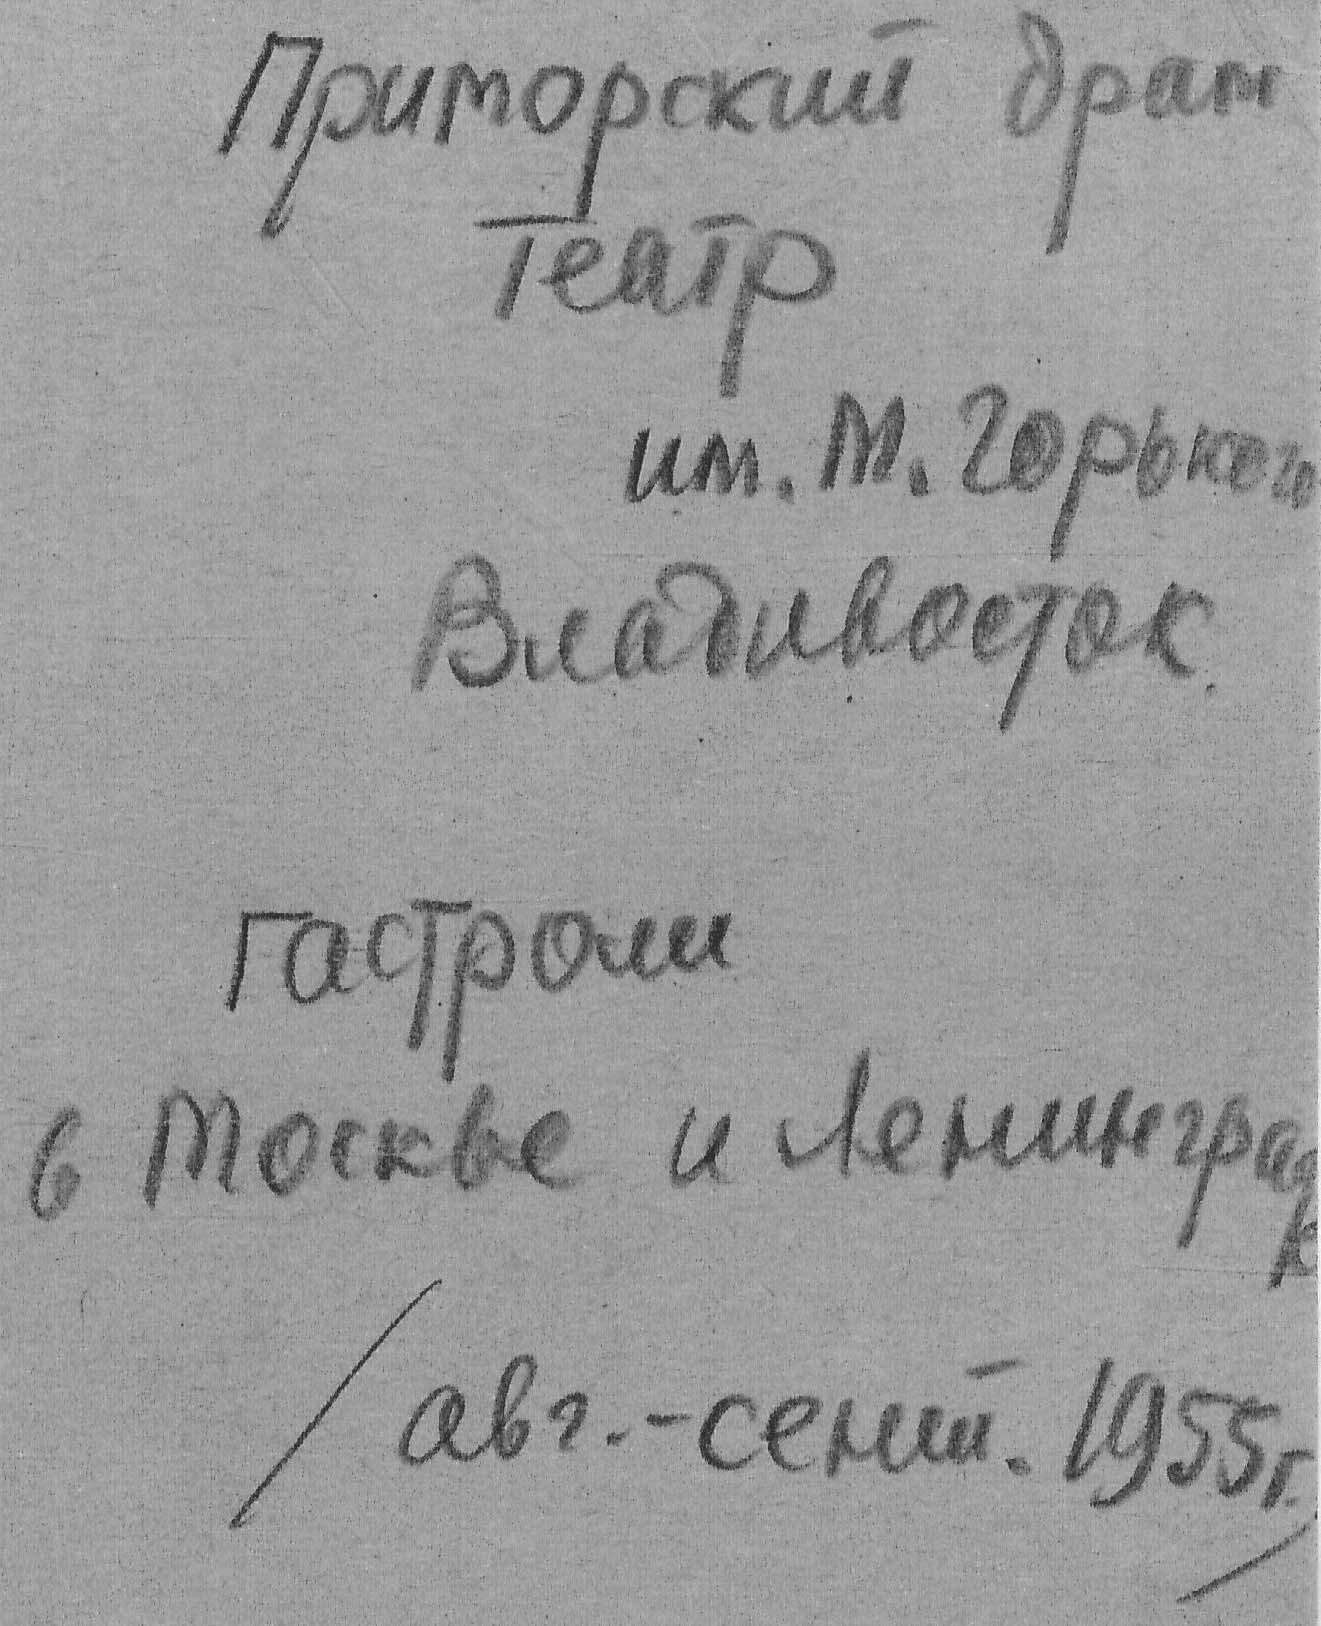 Приморский драм
театр
им. М. Горького
Владивосток
гастроли
в Москве и Ленинград
е
/авг.-сент. 1955г./